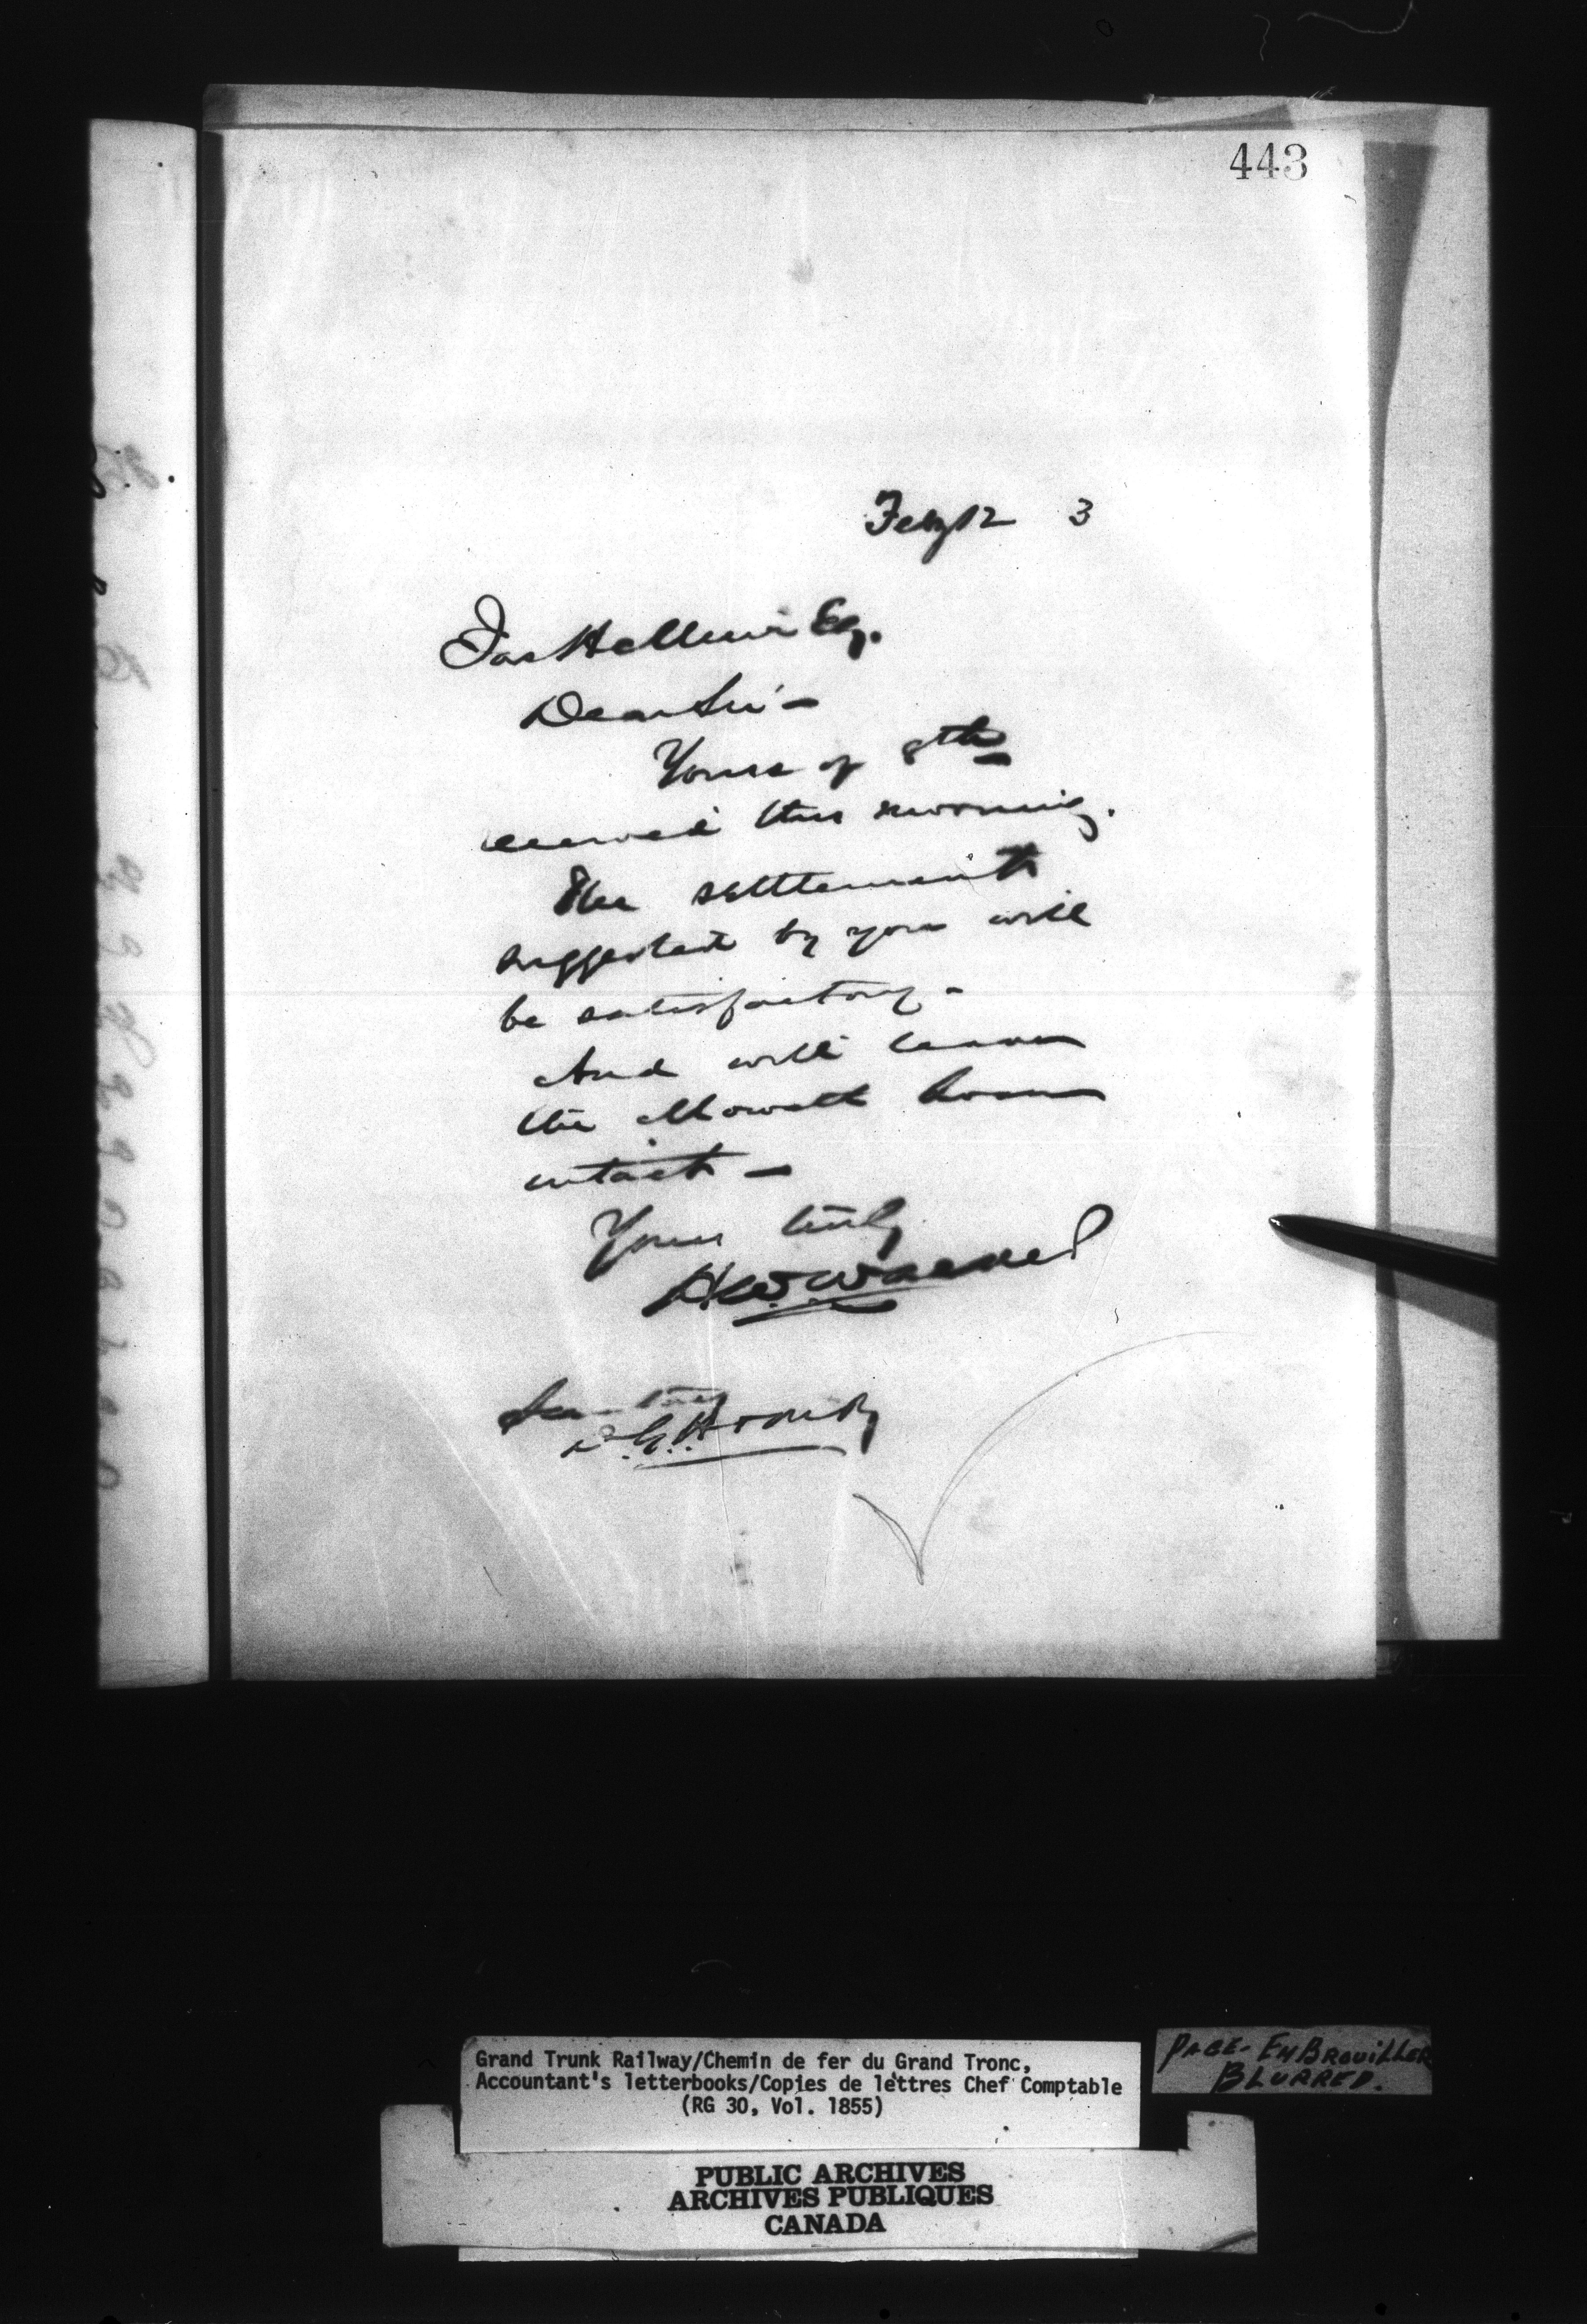 443
Feby 12 3
Jas H Esq.
Dear Sir -
Yours of 8th
received this morning.
The settlement
suggested by you will
be satisfactory -
And will leave
the Mowatt loan
intact -
Yours truly
H.W. Walker
PAGE - EMBROUILLER
BLURRED.
Grand Trunk Railway/Chemin de fer du Grand Tronc,
Accountant's letterbooks/Copies de lettres Chef Comptable
(RG 30, Vol. 1855)
PUBLIC ARCHIVES
ARCHIVES PUBLIQUES
CANADA